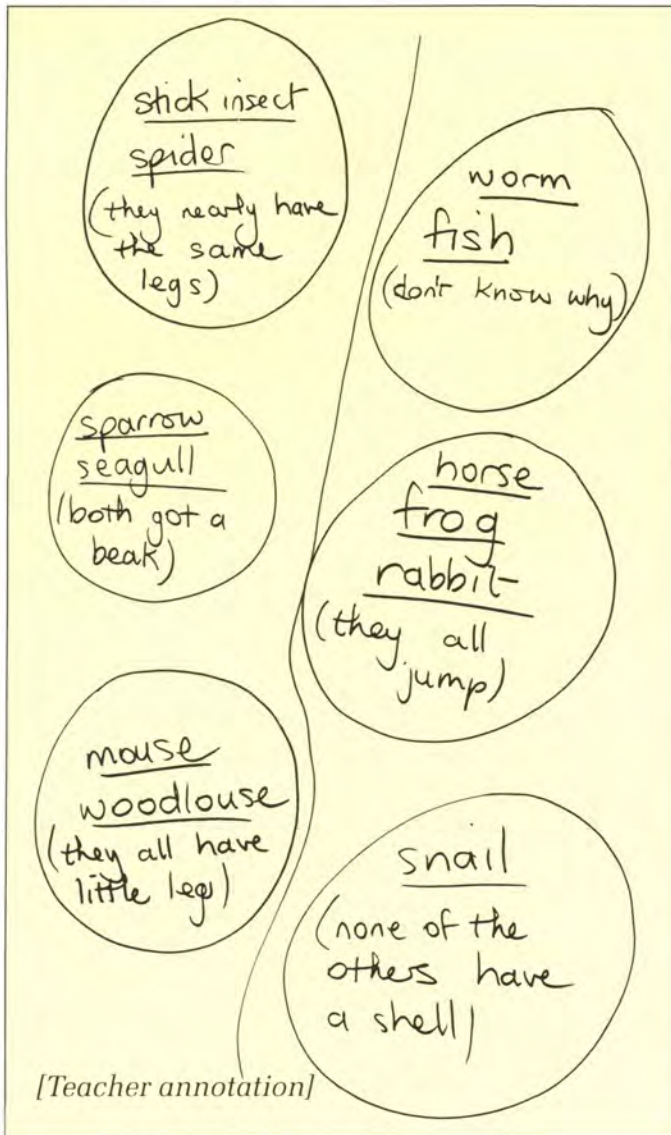 stick insect
spider
(they nearly have
the same
legs)
sparrow
seagull
(both got a
beak)
mouse
woodlouse
(they all have
little legs)
worm
fish
(don't know why)
horse
frog
rabbit
(they all
jump)
snail
(none of the
others have
a shell)
[Teacher annotation]